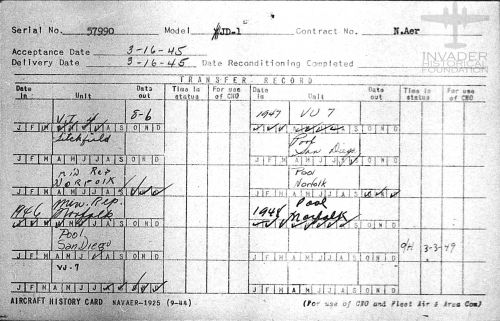 INVADER
HISTORICAL
FOUNDATION
Serial No. 57990 Model JD-1 Contract No. N.Aer
Acceptance Date 3-16-45
Delivery Date 3-16-45 Date Reconditioning Completed
TRANSFER RECORD
Date in Unit Date out Time in status For use of CNO Date in Unit Date out Time in status For use of CNO
VJ 4 8-6 1947 VU 7
J F M A M J J A S O N D J F M A M J J A S O N D
Litchfield Pool
San Diego
J F M A M J J A S O N D J F M A M J J A S O N D
Rep Pool
NORFOLK Norfolk
J F M A M J J A S O N D J F M A M J J A S O N D
1946 Min. Rep. 1948 Pool
Norfolk Norfolk
J F M A M J J A S O N D J F M A M J J A S O N D
Pool
San Diego 3-3-49
J F M A M J J A S O N D J F M A M J J A S O N D
VJ-7
J F M A M J J A S O N D J F M A M J J A S O N D
AIRCRAFT HISTORY CARD NAVAER-1925 (9-44) (For use of CNO and Fleet Air & Area Com)